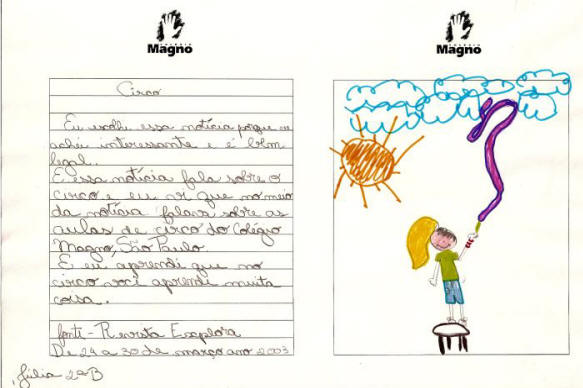 COLÉGIO
Magno
COLÉGIO
Magno
Circo
Eu escolhi essa notícia porque eu
achei interessante e é bem
legal.
E essa notícia fala sobre o
circo e eu vi que no meio
da notícia falava sobre as
aulas de circo do Colégio
Magno, São Paulo.
E eu aprendi que no
circo você aprendi muita
coisa.
fonte - Revista Explora
De 24 a 30 de março ano 2003
Júlia 2ªB